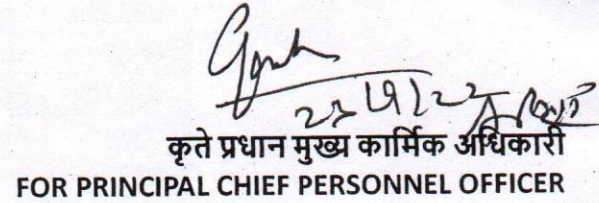 कृते प्रधान मुख्य कार्मिक अधिकारी
FOR PRINCIPAL CHIEF PERSONNEL OFFICER